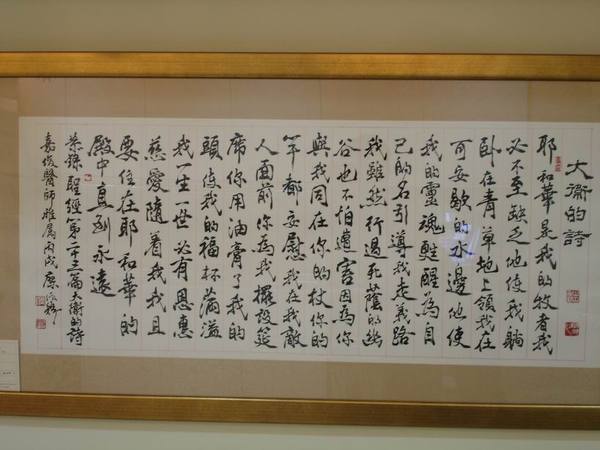 大衛的詩
耶和華是我的牧者我
必不至缺乏他使我躺
臥在青草地上領我在
可安歇的水邊他使
我的靈魂甦醒為自
己的名引導我走義路
我雖然行過死蔭的幽
谷也不怕遭害因為你
與我同在你的杖你的
竿都安慰我在我敵
人面前你為我擺設筵
席你用油膏了我的
頭使我的福杯滿溢
我一生一世必有恩惠
慈愛隨着我我且
要住在耶和華的
殿中直到永遠
恭錄聖經第二十三篇大衛的詩
嘉俊醫師雅屬丙戌廖